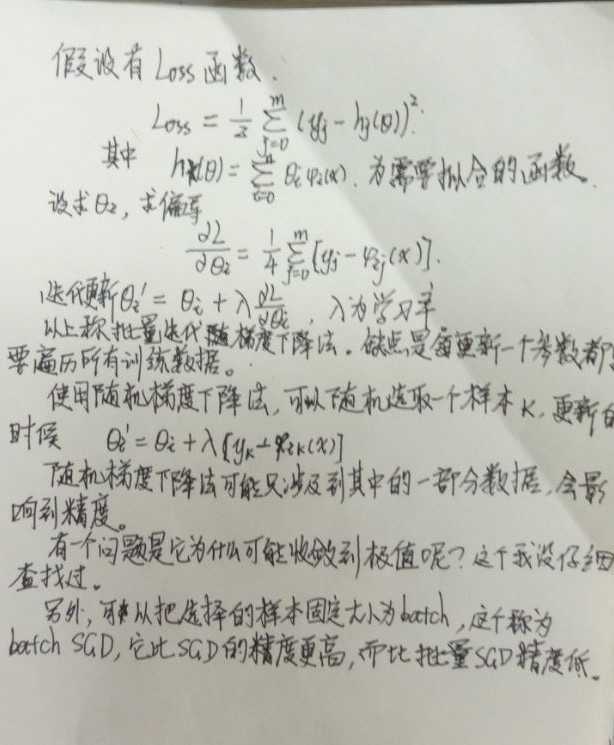 假设有Loss函数.
Loss = 1/2 ∑_{j=0}^{m} (yj - hj(θ))².
其中 h(θ) = ∑_{i=0}^{n} θi φi(x). 为需要拟合的函数.
设求θi, 求偏导
∂L/∂θi = 1/4 ∑_{j=0}^{m} [yj - φij(x)].
迭代更新θi' = θi + λ ∂L/∂θi , λ为学习率
以上称批量迭代梯度下降法。缺点是每更新一个参数都
要遍历所有训练数据。
使用随机梯度下降法,可以随机选取一个样本K,更新的
时候 θi' = θi + λ[yK - φiK(x)]
随机梯度下降法可能只涉及到其中的一部分数据,会影
响到精度。
有一个问题是它为什么可能收敛到极值呢?这个我没仔细
查找过。
另外,可以把选择的样本固定大小为batch,这个称为
batch SGD,它比SGD的精度更高,而比批量SGD精度低。